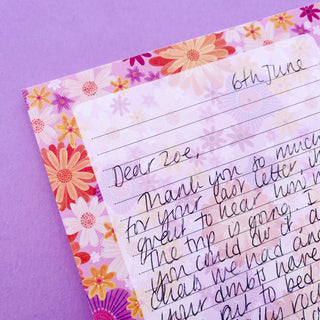 6th June
Dear Zoe,
Thank you so much
for your last letter, it
great to hear how
the trip is going. I
you could do it, a
that we had any
your doubts have
put to bed
really